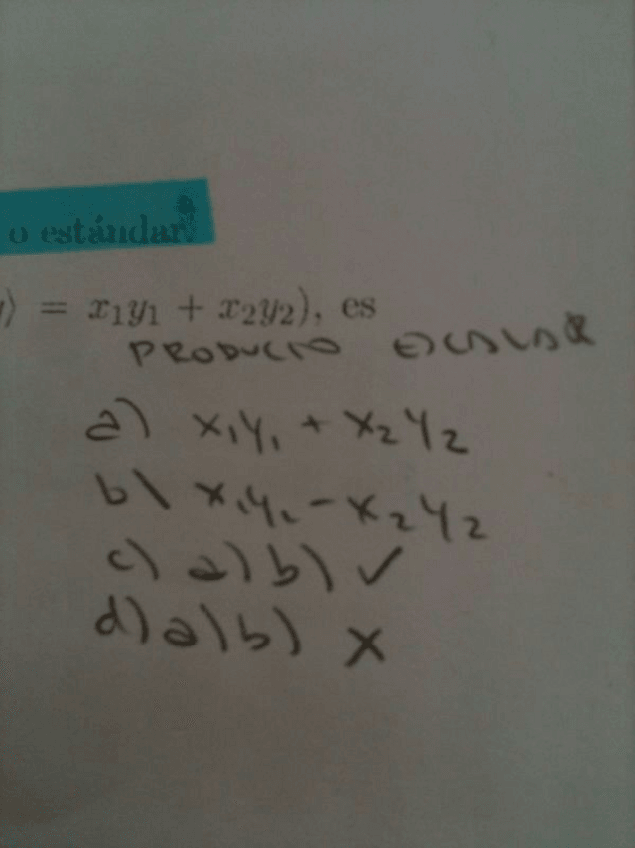 o estándar.
⟩ = x₁y₁ + x₂y₂), es
PRODUCTO ESCALAR
a) x₁y₁ + x₂y₂
b) x₁y₁ - x₂y₂
c) a) b) ✓
d) a) b) X